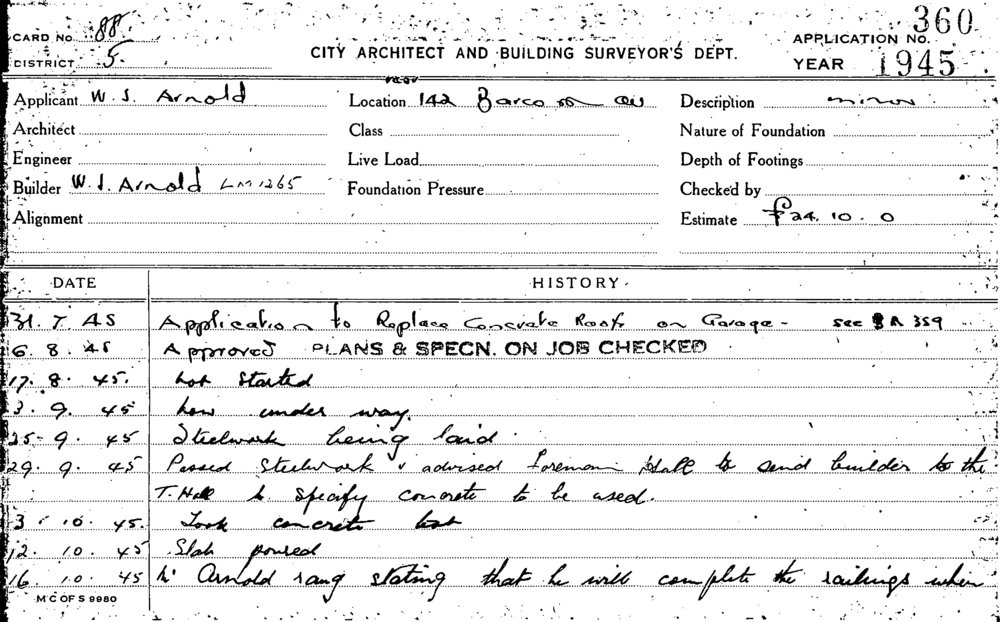 CARD No. 88.
DISTRICT 5.
CITY ARCHITECT AND BUILDING SURVEYOR'S DEPT.
APPLICATION NO. 360
YEAR 1945
Applicant W. J. Arnold
Location near 142
Description minor
Architect
Class
Nature of Foundation
Engineer
Live Load
Depth of Footings
Builder W. J. Arnold LM1265
Foundation Pressure
Checked by
Alignment
Estimate £24. 10. 0
DATE HISTORY
31. 7. 45 Application to Replace Concrete Roof on Garage - see BA 359
6. 8. 45 Approved PLANS & SPECN. ON JOB CHECKED
17. 8. 45. not started
3. 9. 45 now under way.
25. 9. 45 Steelwork being laid.
29. 9. 45 Passed Steelwork & advised Foreman Hall to send builder to the
T. Hall to specify concrete to be used.
3. 10. 45. Took concrete test
12. 10. 45 Slab poured
16 10. 45 Mr Arnold rang stating that he will complete the railings when
M C OF S 9980